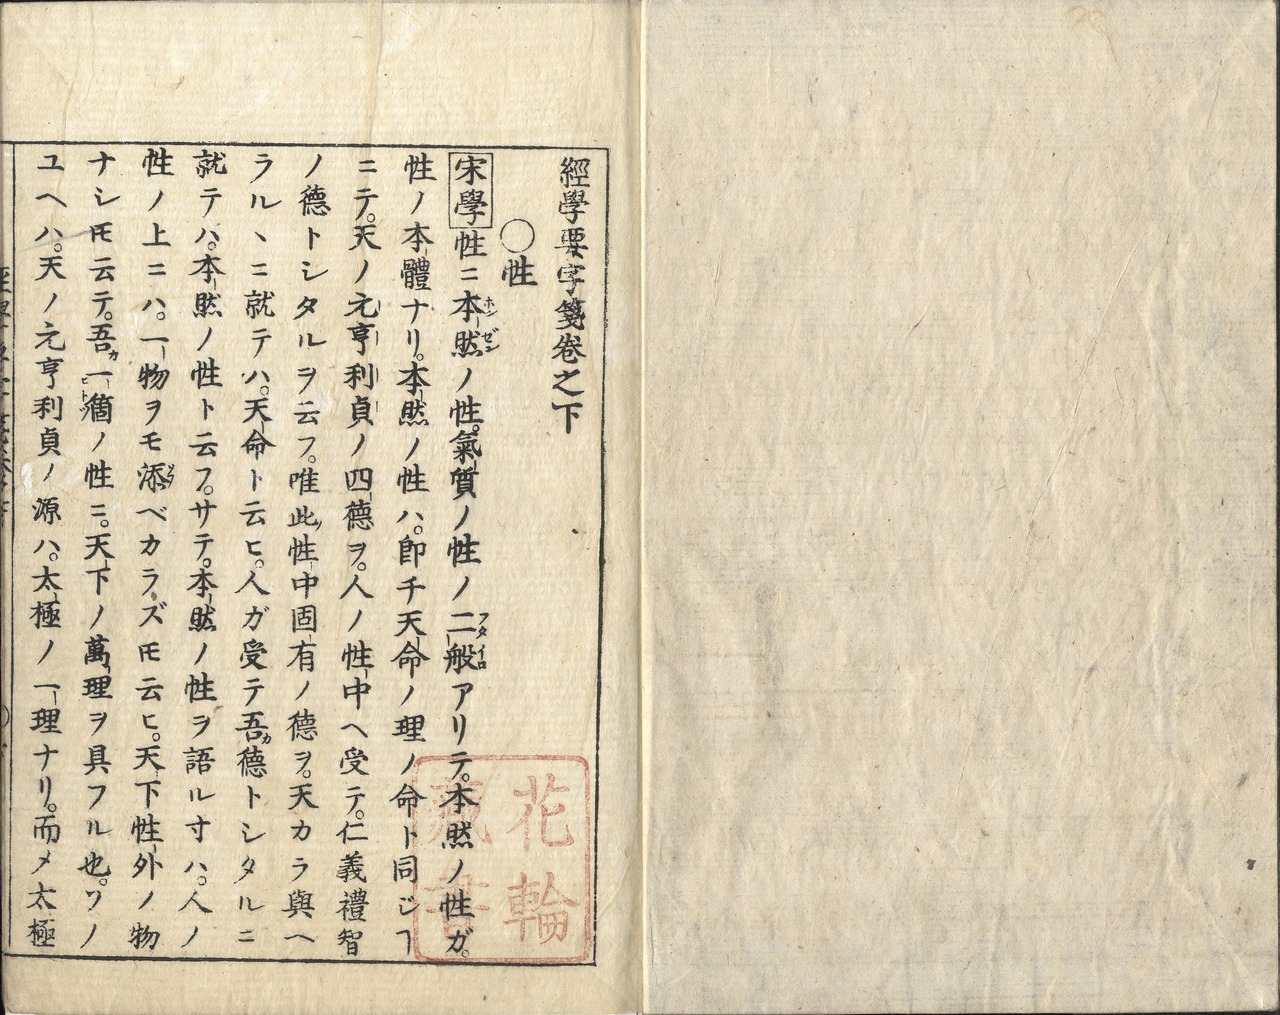 經學要字箋卷之下
○性
宋學性ニ本然ノ性。氣質ノ性ノ二般アリテ。本然ノ性ガ。
ホンゼン
フタイロ
性ノ本體ナリ。本然ノ性ハ。卽チ天命ノ理ノ命ト同ジヿ
ニテ。天ノ元亨利貞ノ四德ヲ。人ノ性中ヘ受テ。仁義禮智
ノ德トシタルヲ云フ。唯此ノ性中固有ノ德ヲ。天カラ與ヘ
ラルヽニ就テハ。天命ト云ヒ。人ガ受テ吾カ德トシタルニ
就テハ。本然ノ性ト云フ。サテ。本然ノ性ヲ語ル寸ハ。人ノ
性ノ上ニハ。一物ヲモ添ベカラズ𪜈云ヒ。天下性外ノ物
ナシ𪜈云テ。吾カ一箇ノ性ニ。天下ノ萬理ヲ具フル也。ソノ
ユヘハ。天ノ元亨利貞ノ源ハ。太極ノ一理ナリ。而〆太極
花輪
藏書